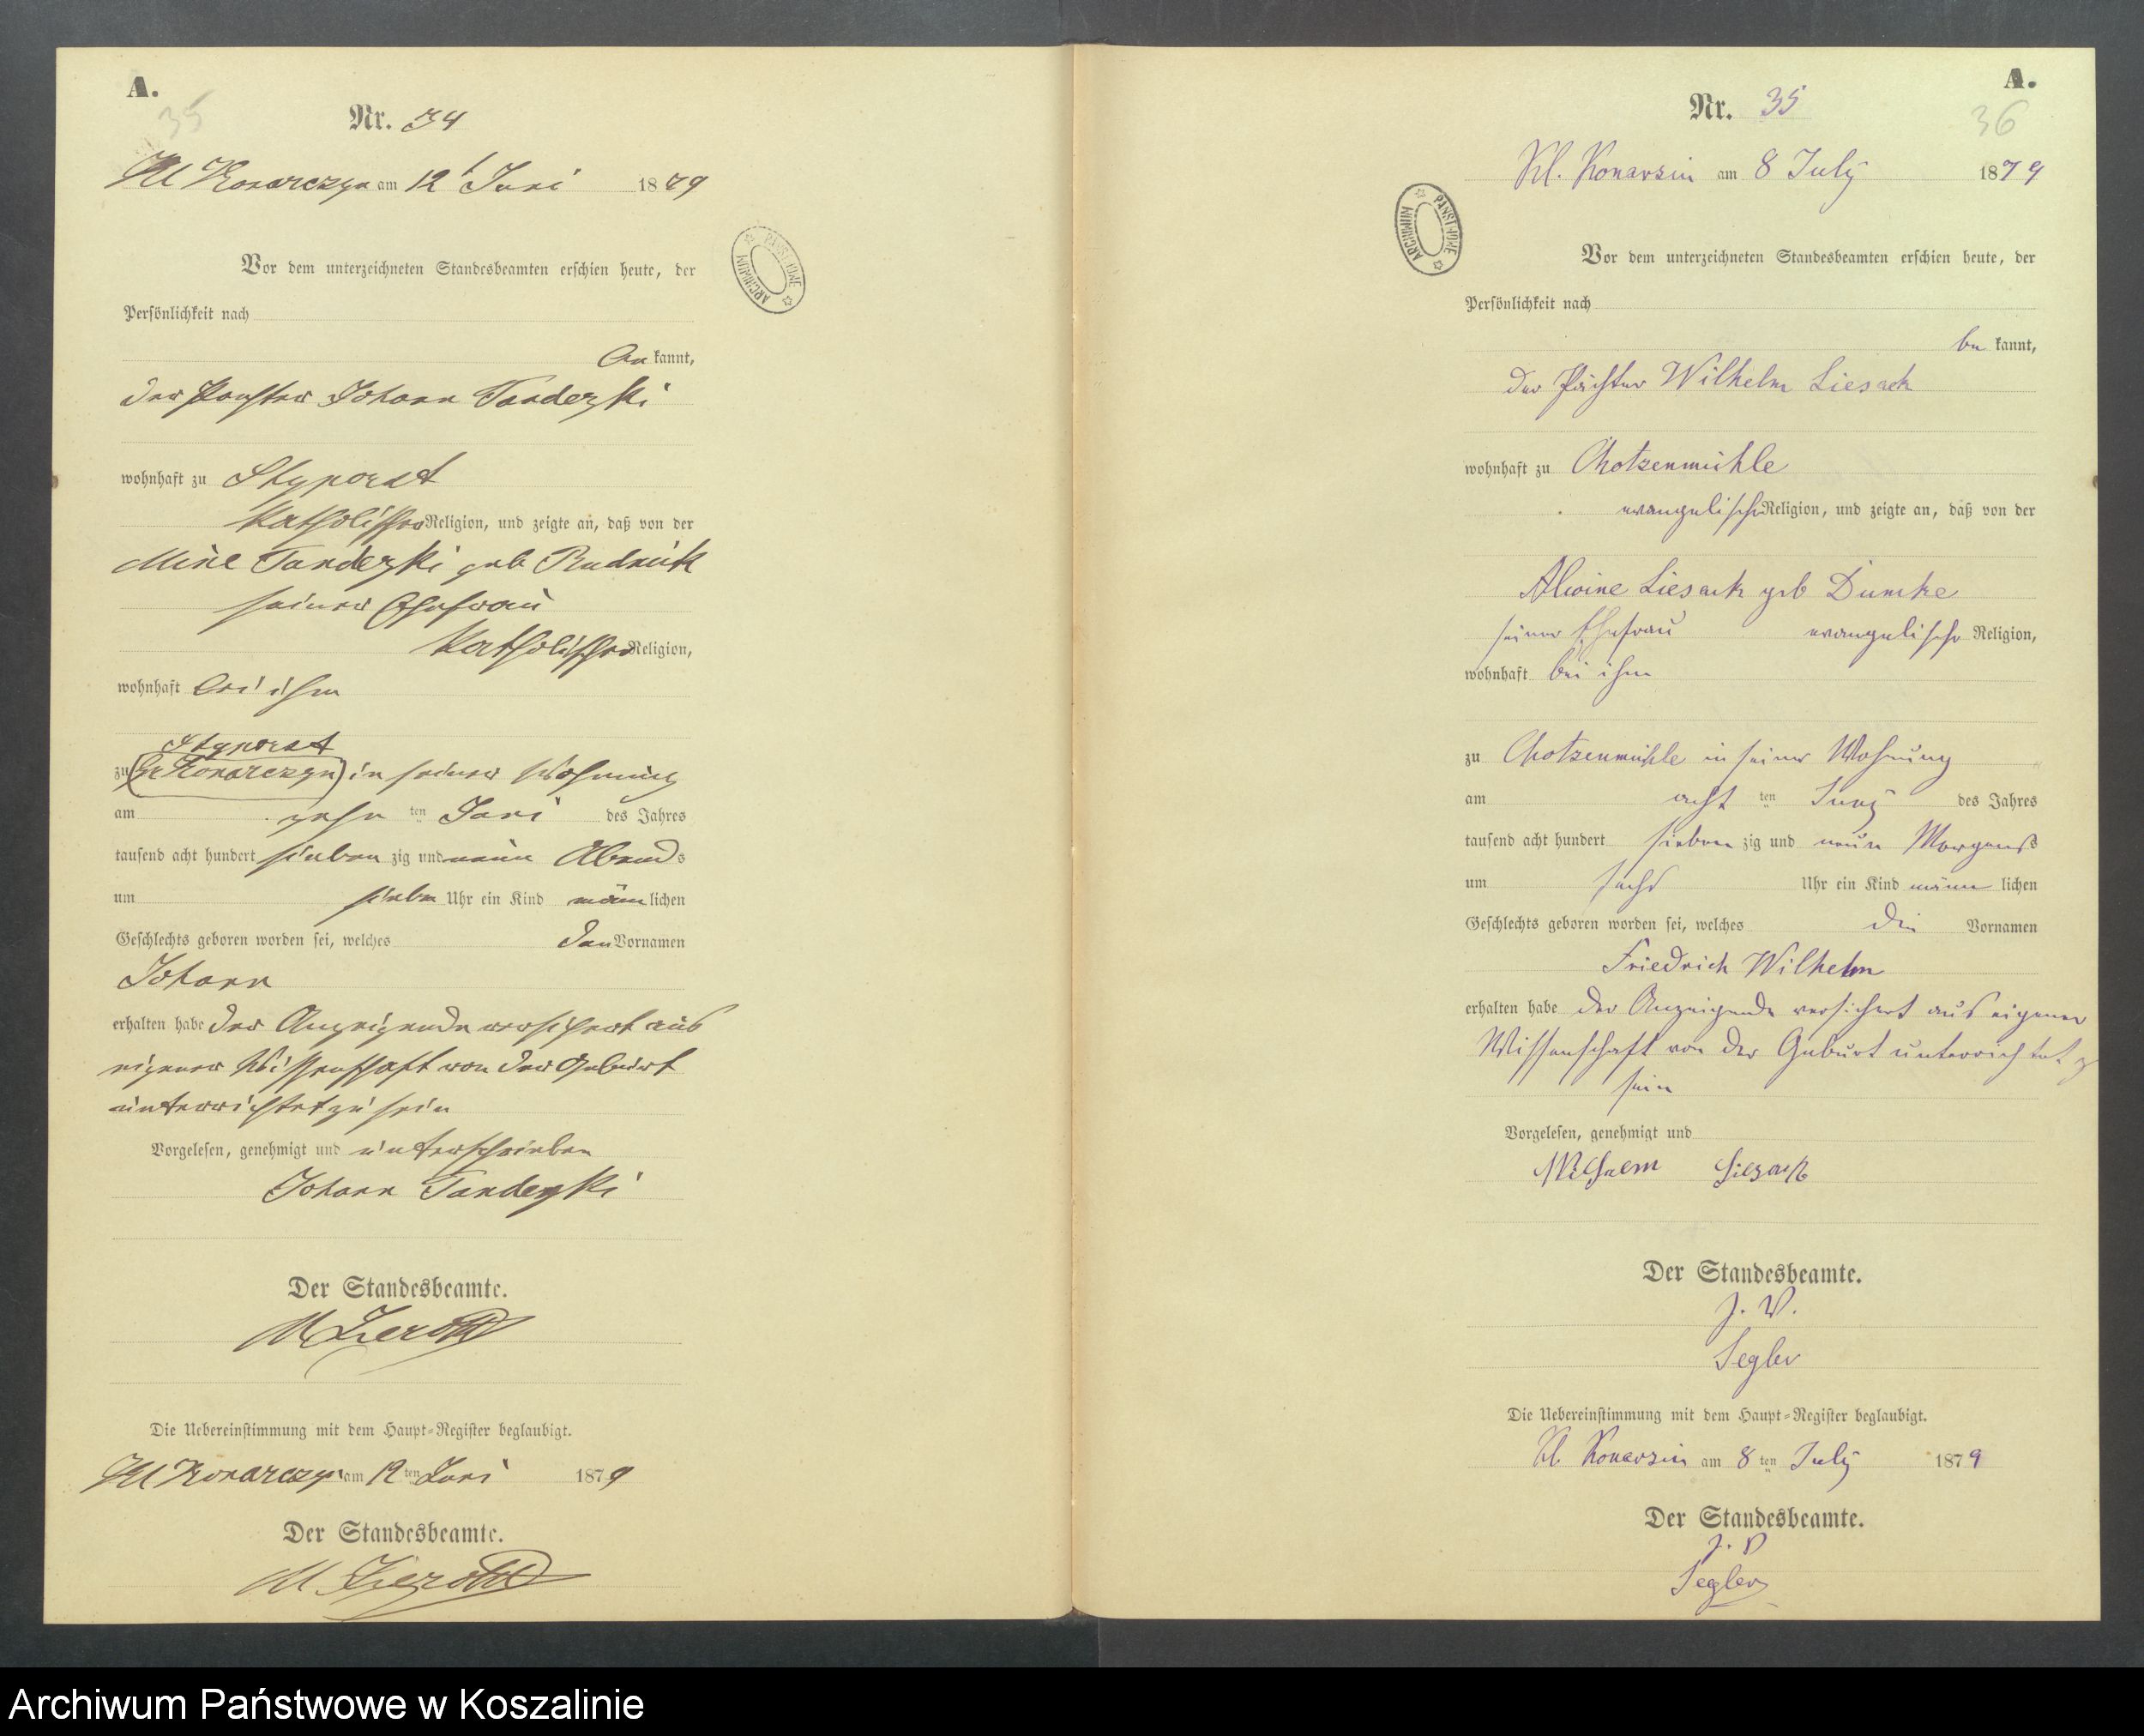 A.
35
Nr. 34
Kl Konarczyn am 12 Juni 1879
Vor dem unterzeichneten Standesbeamten erschien heute, der
Persönlichkeit nach
be kannt,
der Johann Tanderski
wohnhaft zu Styporst
katholischer Religion, und zeigte an, daß von der
Mine Tanderski geb Rudnick
seiner Ehefrau
katholischer Religion,
wohnhaft bei ihm
Styporst
zu (Gr Konarczyn) in seiner Wohnung
am zehn ten Juni des Jahres
tausend acht hundert sieben zig und neun Abends
um sieben Uhr ein Kind männ lichen
Geschlechts geboren worden sei, welches den Vornamen
Johann
erhalten habe der Anzeigende versichert aus
eigener Wissenschaft von der Geburt
unterrichtet zu sein
Vorgelesen, genehmigt und unterschrieben
Johann Tanderski
Der Standesbeamte.
Die Uebereinstimmung mit dem Haupt-Register beglaubigt.
Kl Konarczyn am 12 ten Juni 1879
Der Standesbeamte.
ARCHIWUM PAŃSTWOWE
A.
36
Nr. 35
Kl. Konarsin am 8 July 1879
Vor dem unterzeichneten Standesbeamten erschien heute, der
Persönlichkeit nach
be kannt,
der Pächter Wilhelm Liesack
wohnhaft zu Chotzenmühle
evangelischer Religion, und zeigte an, daß von der
Alwine Liesack geb Dumke
seiner Ehefrau evangelischer Religion,
wohnhaft bei ihm
zu Chotzenmühle in seiner Wohnung
am acht ten Juny des Jahres
tausend acht hundert sieben zig und neun Morgens
um sechs Uhr ein Kind männ lichen
Geschlechts geboren worden sei, welches die Vornamen
Friedrich Wilhelm
erhalten habe der Anzeigende versichert aus eigener
Wissenschaft von der Geburt unterrichtet z
sein
Vorgelesen, genehmigt und
Wilhelm Liesack
Der Standesbeamte.
J. V.
Segler
Die Uebereinstimmung mit dem Haupt-Register beglaubigt.
Kl. Konarsin am 8 ten July 1879
Der Standesbeamte.
J. V
Segler
ARCHIWUM PAŃSTWOWE
Archiwum Państwowe w Koszalinie